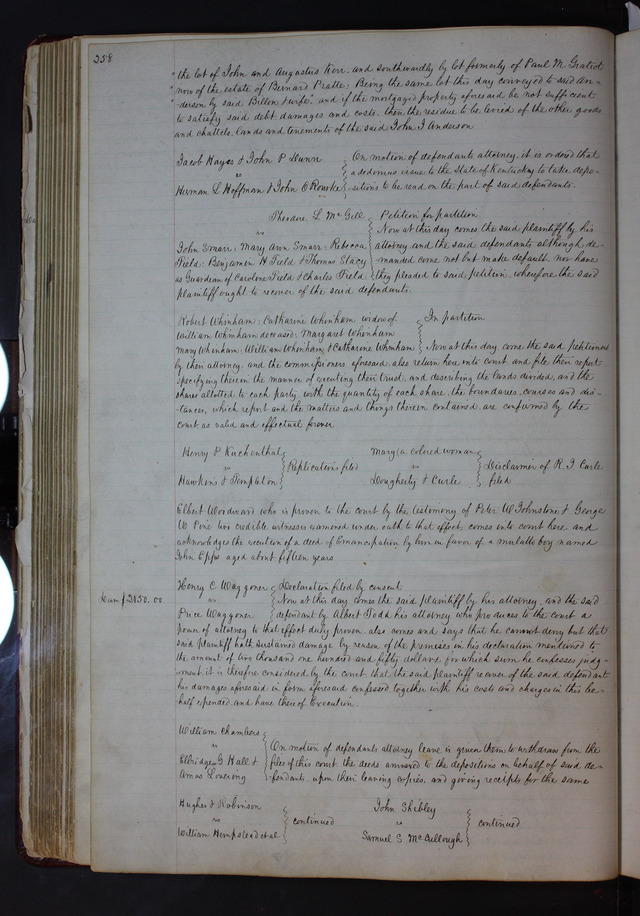 358
the lot of John and Augustus Kerr. and southwardly by lot formerly of Paul M. Gratiot
now of the estate of Bernard Pratte; Being the same lot this day conveyed to said An-
derson by said Billon & wife" and if the mortgaged property aforesaid be not sufficient
to satisfy said debt damages and costs, then the residue to be levied of the other goods
and chattels lands and tenements of the said John J Anderson
Jacob Hayes & John P Dunn
vs
Herman L Hoffman & John O'Rourke
On motion of defendants attorney it is ordered that
a dedimus issue to the State of Kentucky to take depo-
sitions to be read on the part of said defendants.
Theodore L McGill
vs
John Smarr; Mary Ann Smarr; Rebecca
Field; Benjamin H Field & Thomas Stacy
as Guardian of Caroline Field & Charles Field
Petition for partition
Now at this day comes the said plaintiff by his
attorney and the said defendants although de-
manded come not but make default. nor have
they pleaded to said petition. wherefore the said
plaintiff ought to recover of the said defendants.
Robert Whinham; Catharine Whinham widow of
William Whinham deceased; Margaret Whinham
Mary Whinham; William Whinham & Catharine Whinham
In partition
Now at this day come the said petitioners
by their attorney, and the commissioners aforesaid, also return here into court and file their report
specifying therein the manner of executing their trust, and describing the lands divided, and the
shares allotted to each party, with the quantity of each share, the boundaries, courses and dis-
tances, which report and the matters and things therein contained are confirmed by the
court as valid and effectual forever
Henry P Kuchenthal
vs
Hawkins & Templeton
Replications filed
Mary (a colored woman
vs
Dougherty & Curle
Disclaimer of R. J Curle
filed
Elbert Woodward who is proven to the court by the testimony of Peter W Johnstone & George
W. two credible witnesses examined under oath to that effect, comes into court here and
acknowledges the execution of a deed of Emancipation by him in favor of a mulatto boy named
John Epps aged about fifteen years
Henry C Waggoner
vs
Price Waggoner
Declaration filed by consent
Sum $2150.00
Now at this day comes the said plaintiff by his attorney, and the said
defendant by Albert Todd his attorney who produces to the court a
power of attorney to that effect duly proven. also comes and says that he cannot deny but that
said plaintiff hath sustained damage by reason of the premises in his declaration mentioned to
the amount of two thousand one hundred and fifty dollars, for which sum he confesses judg-
ment. it is therefore considered by the court. that the said plaintiff recover of the said defendant
his damages aforesaid in form aforesaid confessed together with his costs and charges in this be-
half expended. and have thereof Execution.
William Chambers
vs
Elbridge G Hall &
Amos
On motion of defendants attorney leave is given them to withdraw from the
files of this court. the deeds annexed to the depositions on behalf of said de-
fendants. upon their leaving copies, and giving receipts for the same
Hughes & Robinson
vs
William Hempstead et al
continued
John Shibley
vs
Samuel S McCullough
continued